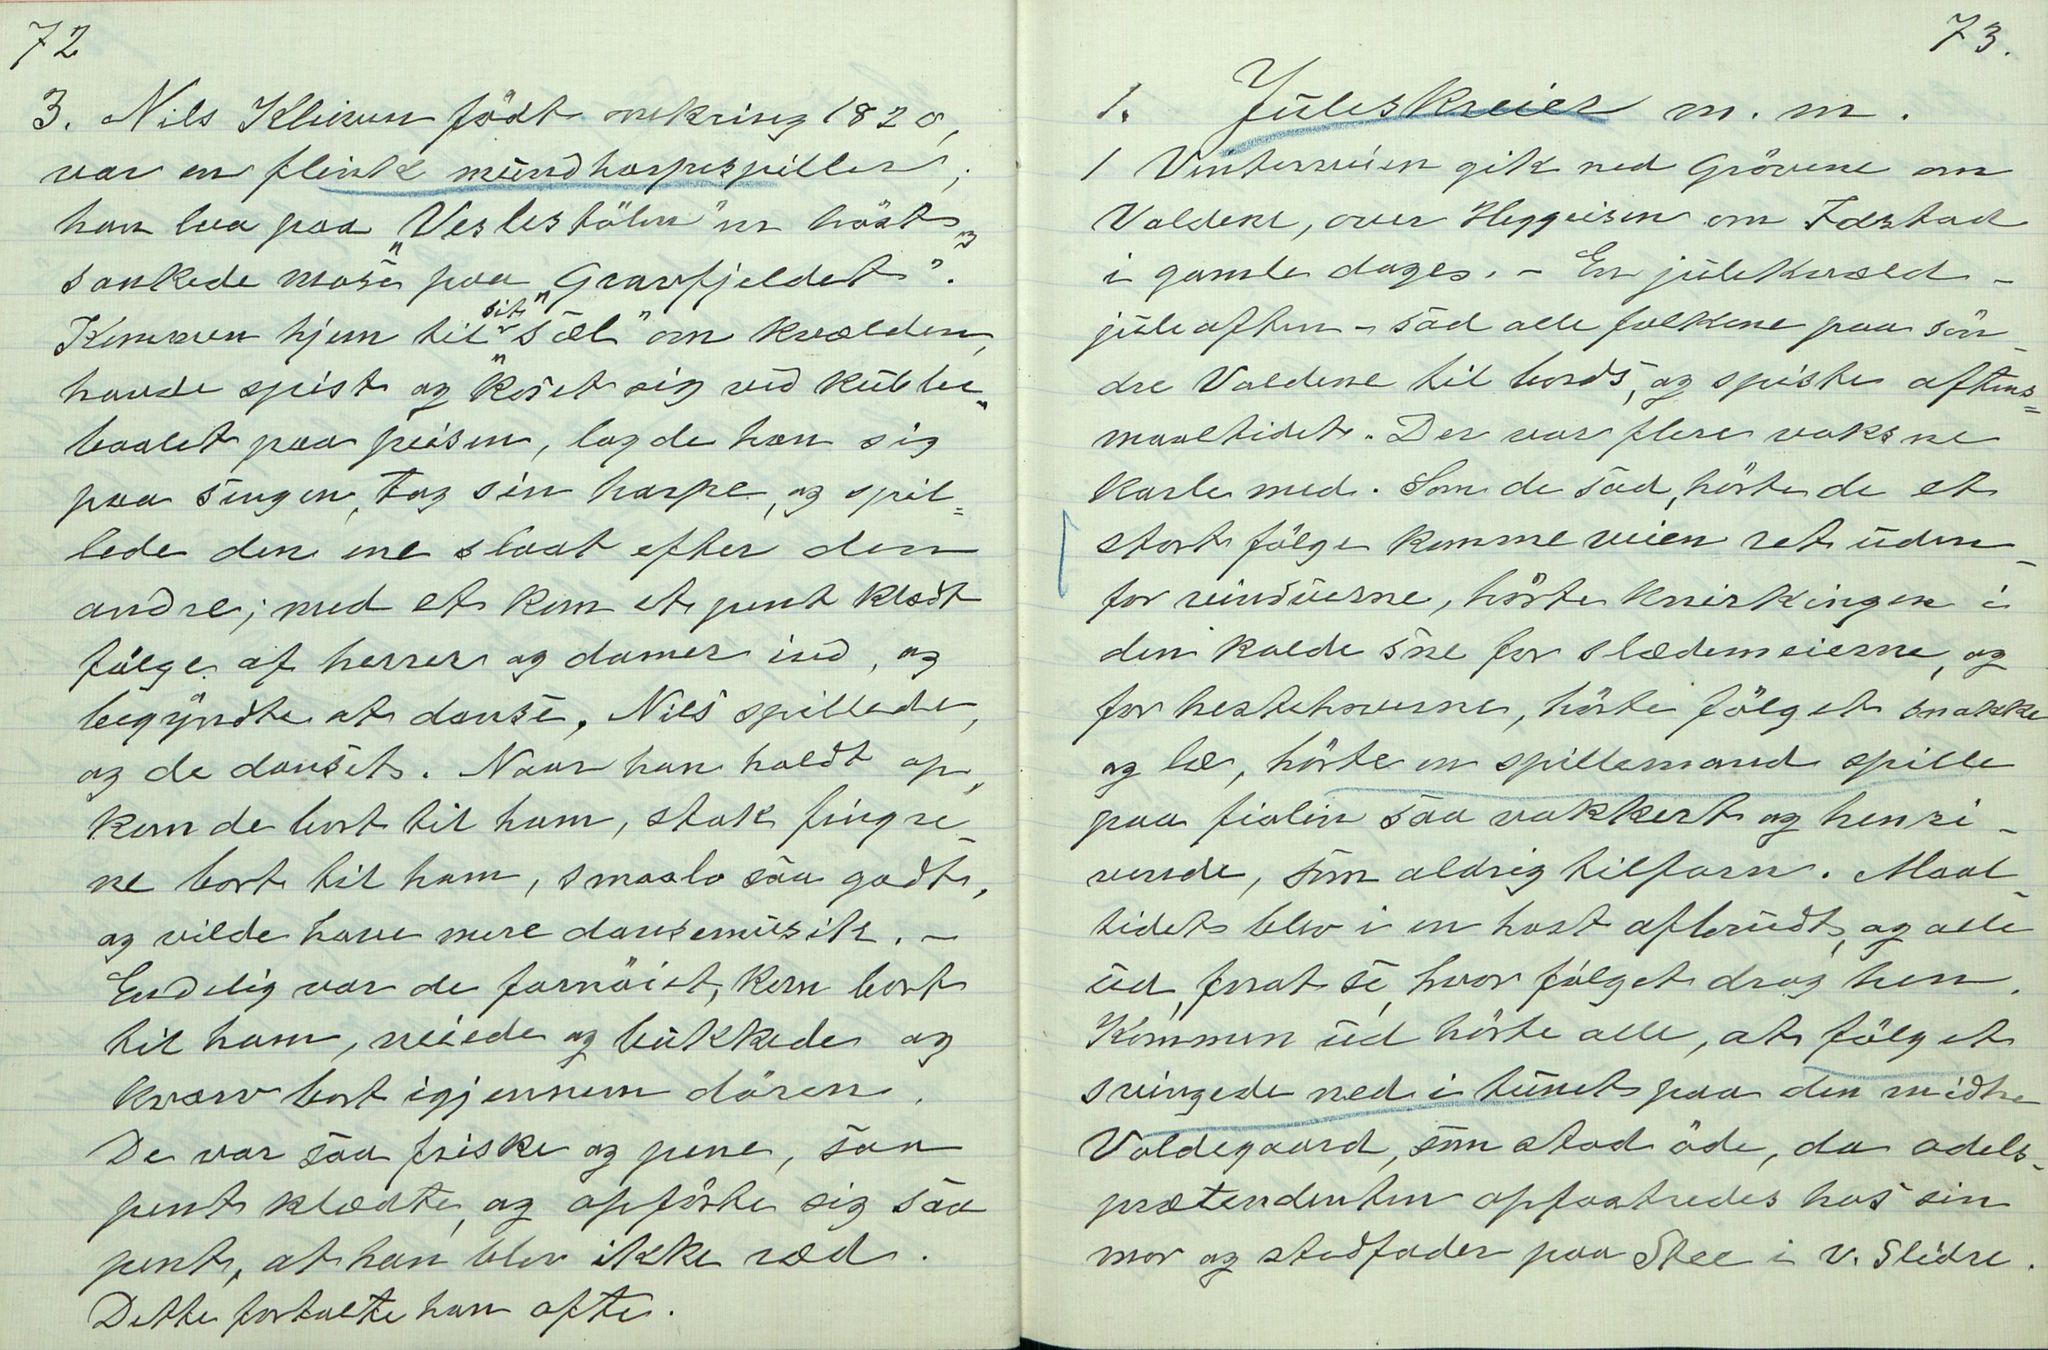 72
3. Nils Kliven født omkring 1820,
var en flink mundharpespiller;
han laa paa „Veslestølen" en høst,
sankede mose paa „Gravfjeldet".
Kommen hjem til sit „sæl" om kvælden,
havde spist og koset sig ved kubbe-
baalet paa peisen, lagde han sig
paa sengen, tog sin harpe, og spil-
lede den ene slaat efter den
andre; med et kom et pent klædt
følge af herrer og damer ind, og
begyndte at danse. Nils spillede,
og de danset. Naar han holdt op,
kom de bort til ham, stak fingre-
ne bort til ham, smaalo saa godt,
og vilde have mere dansemusik. –
Endelig var de fornøiet, kom bort
til ham, neiede og bukkede og
kvarv bort igjennem døren.
De var saa friske og pene, saa
pent klædte, og opførte sig saa
pent, at han blev ikke ræd.
Dette fortalte han ofte.
73.
1. Juleskreier m. m.
1 Vinterveien gik ned Grøvene om
Valdene, over Heggeisen om Idstad
i gamle dager. – En julekvæld –
juleaften – sad alle folkene paa søn-
dre Valdene til bords, og spiste aftens-
maaltidet. Der var flere voksne
karle med. Som de sad, hørte de et
stort følge komme veien ret uden-
for vinduerne, hørte knirkingen i
den kolde sne for slædemeierne, og
for hestehovene, hørte følget snakke
og le, hørte en spillemand spille
paa fiolin saa vakkert og henri-
vende, som aldrig tilforn. Maal-
tidet blev i en hast afbrudt, og alle
ud, forat se, hvor følget drog hen.
Kommen ud hørte alle, at følget
svingede ned i tunet paa den midtre
Valdegaard, som stod øde, da odels-
prætendenten opfostredes hos sin
mor og stedfader paa Stee i V. Slidre.